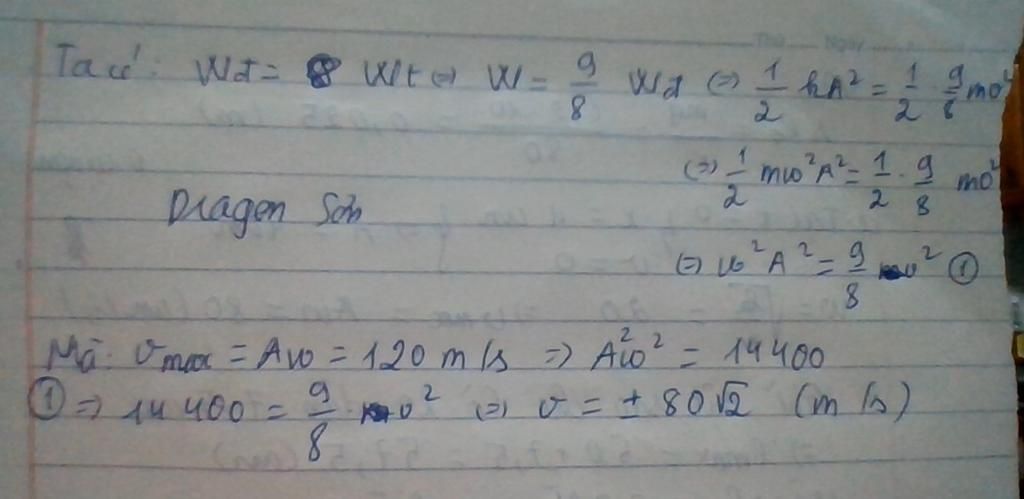 Ta có: Wđ = 8 Wt ⇔ W = 9/8 Wđ ⇔ 1/2 kA² = 1/2 9/8 mv²
⇔ 1/2 mω²A² = 1/2 . 9/8 mv²
Dragen Son
⇔ ω²A² = 9/8 v² ①
Mà: vmax = Aω = 120 m/s ⇒ A²ω² = 14400
① ⇒ 14400 = 9/8 v² ⇔ v = ± 80√2 (m/s)